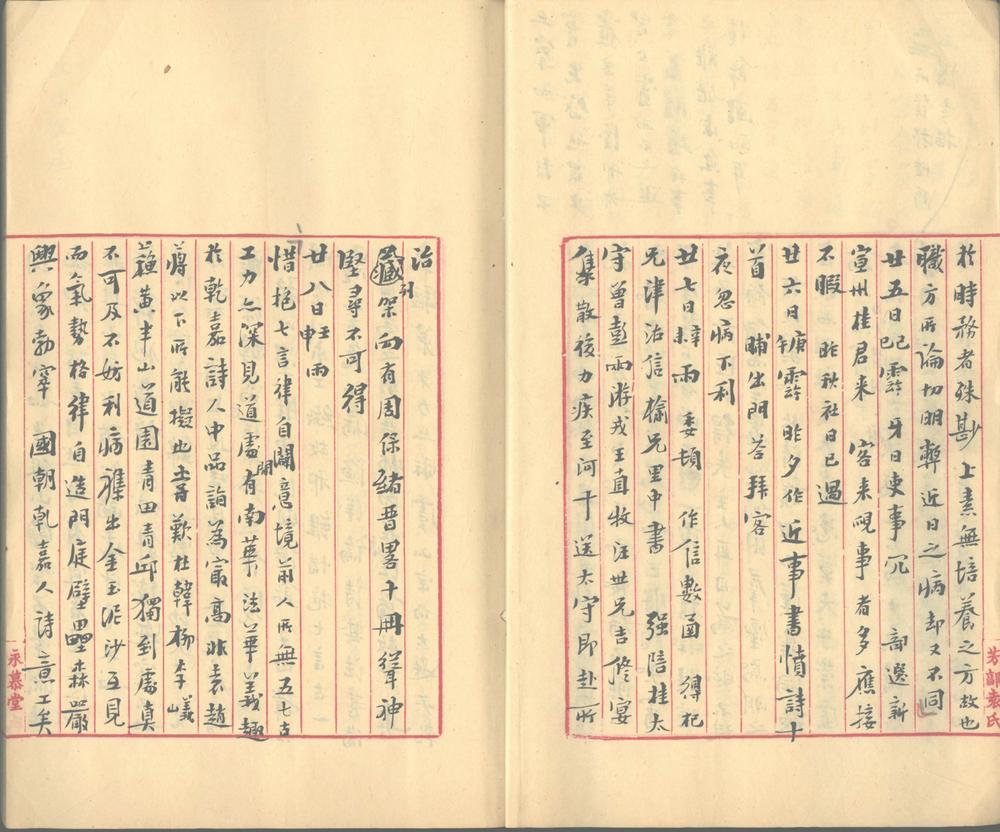 於時務者殊尠上素無培養之方故也
職方所論切明弊近日之病却又不同
廿五日己巳霽 牙日吏事冗 部選新
宣州桂君来 客来唲事者多應接
不暇 昨秋社日已過
廿六日庚午霽 昨夕作近事書憤詩十
首 晡出門答拜客
夜忽病下利
廿七日辛未雨 委頓 作信數函 得杞
兄津治信榆兄里中書 强陪桂太
守曾彭雨游戎王直牧汪世兄吉修宴
集 散後力疾至河干送太守即赴所
治
藏刊架向有周保緒晋畧十冊 聳神
堅尋不可得
廿八日壬申雨
惜抱七言律自闢意境前人所無五七古
工力亦深見道處間有南華法華義趣
於乾嘉詩人中品詣為冣高非袁趙
蔣以下所能擬也 嘗歎杜韓楊李嶬
蘇黃半山道園青田青邱獨到處真
不可及不妨利病雜出金玉泥沙互見
而氣勢格律自造門庭壁壘森嚴
興象勃窣 國朝乾嘉人詩意工矣
芳郭袁氏
永慕堂